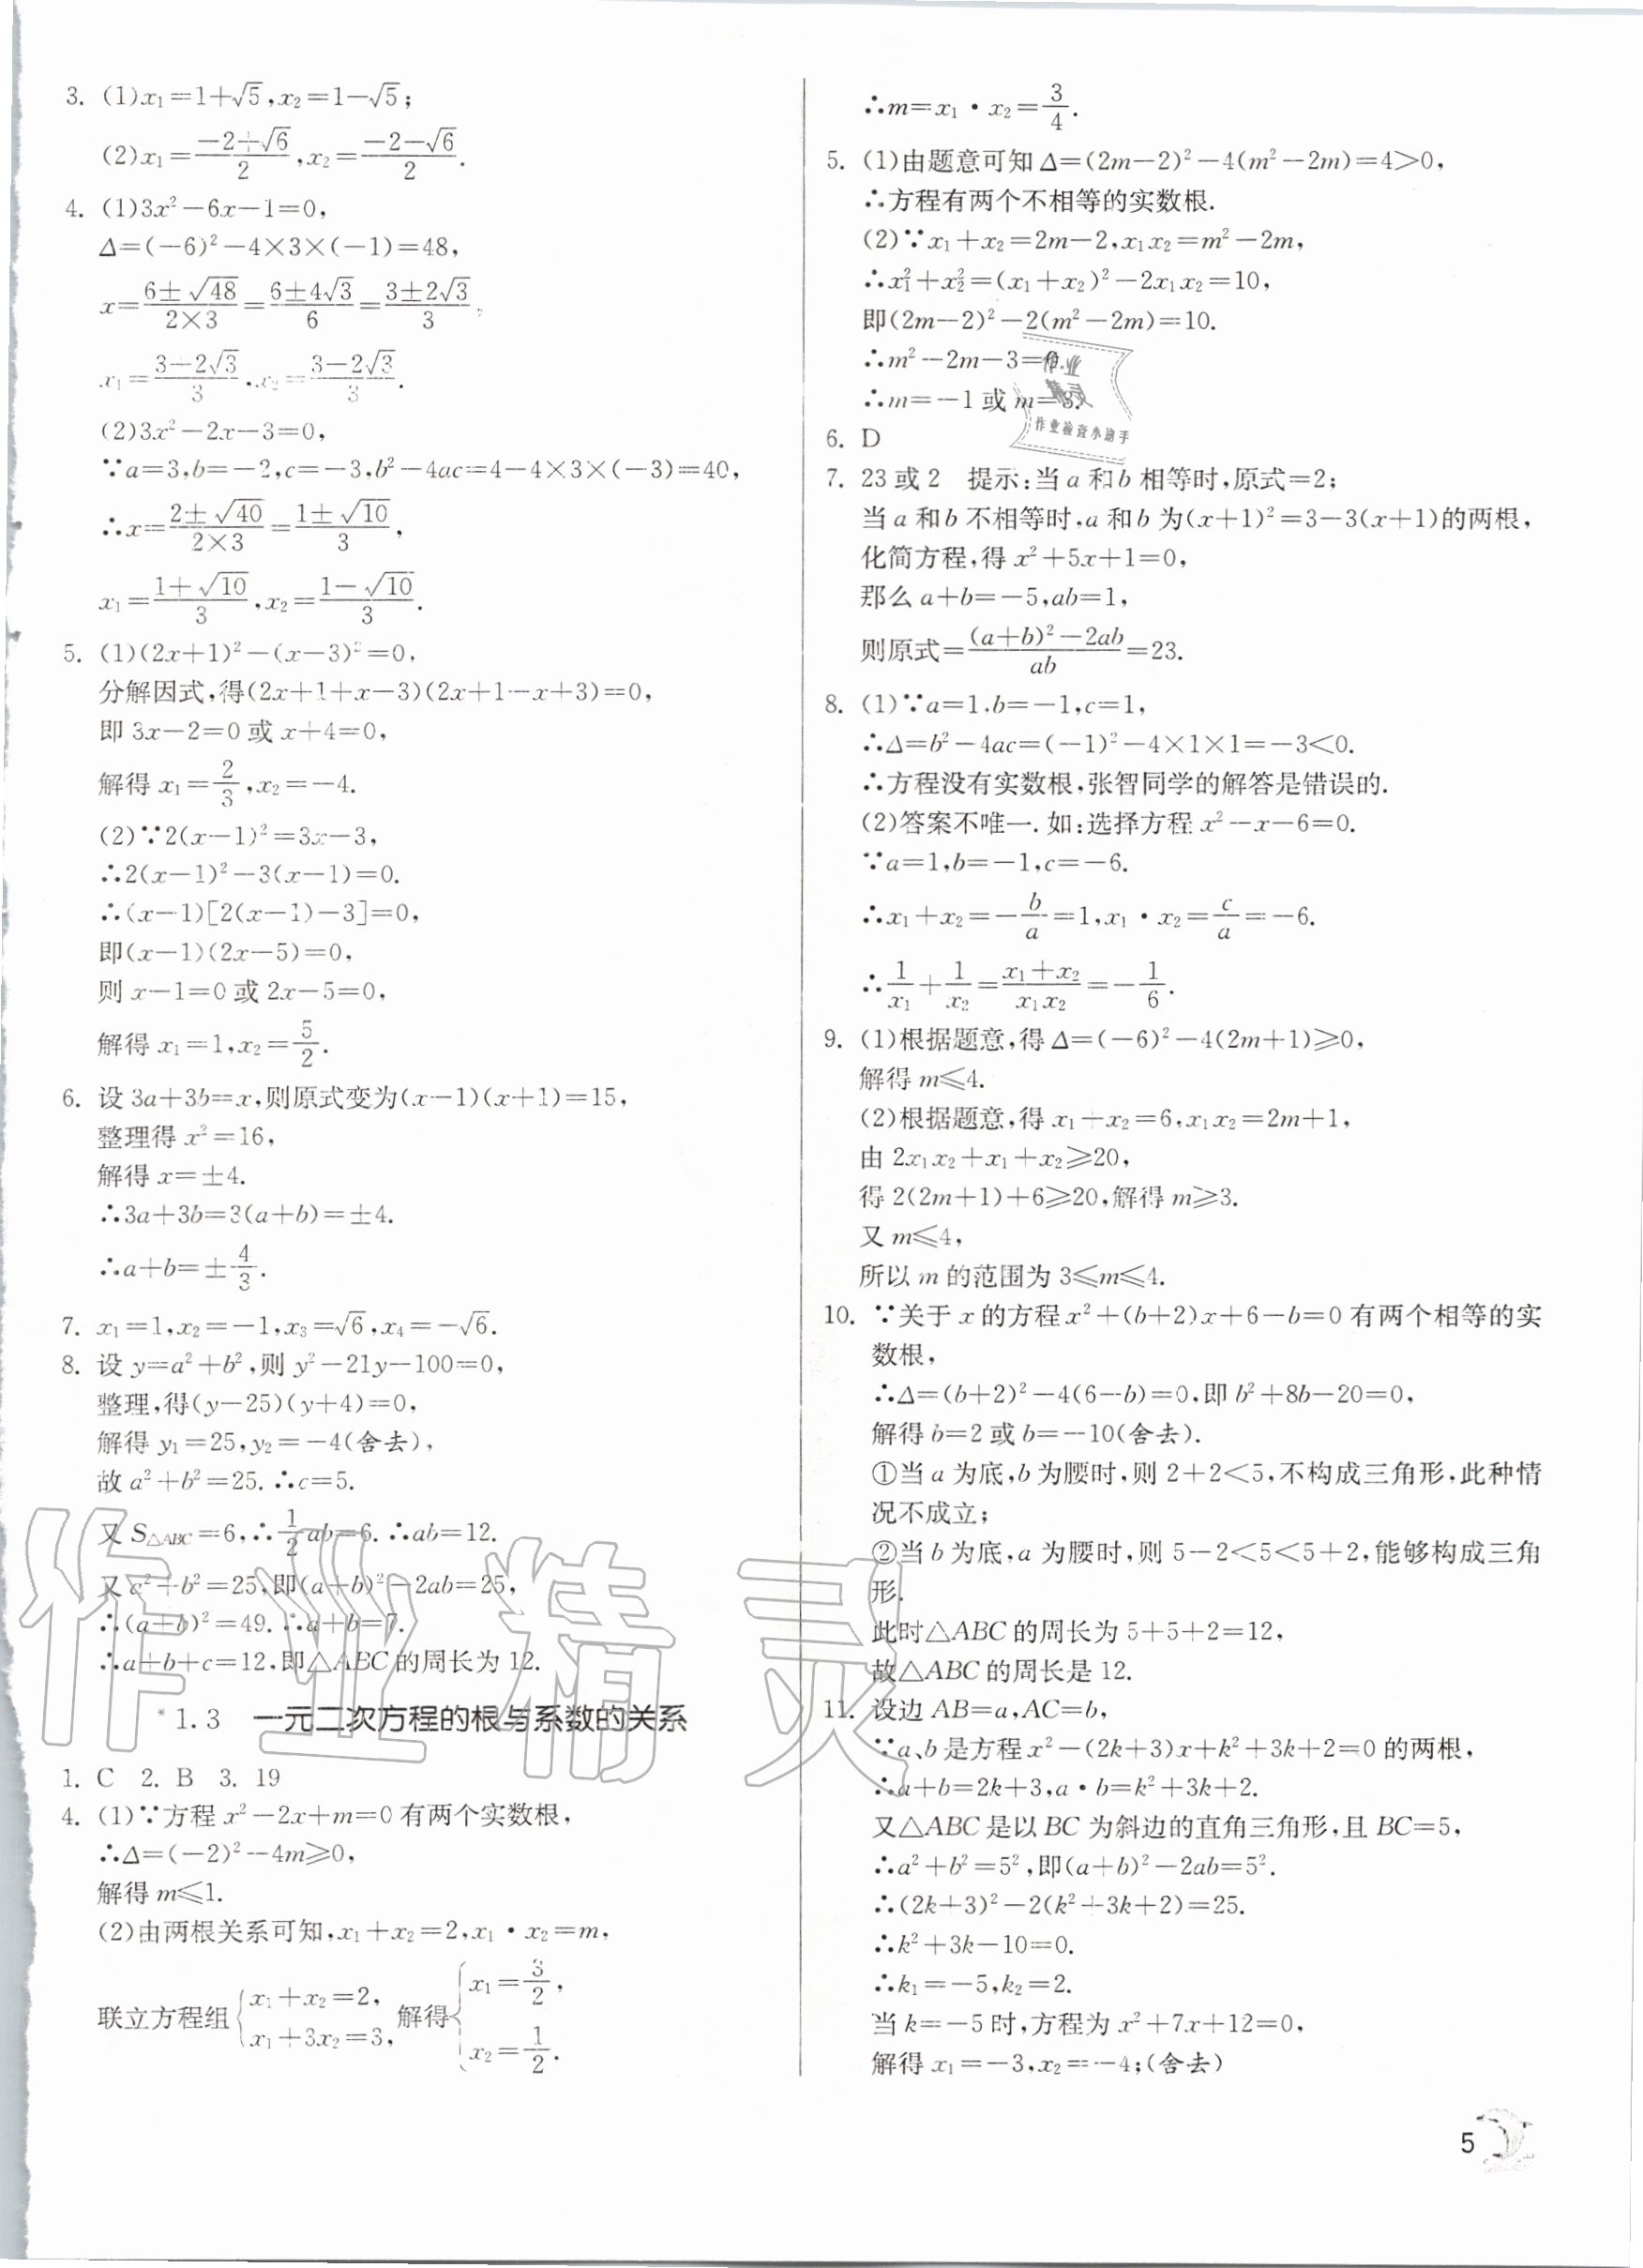 3. (1)x₁=1+√5,x₂=1−√5;
(2)x₁=(−2+√6)/2,x₂=(−2−√6)/2.
4. (1)3x²−6x−1=0,
Δ=(−6)²−4×3×(−1)=48,
x=(6±√48)/(2×3)=(6±4√3)/6=(3±2√3)/3,
x₁=(3−2√3)/3,x₂=(3−2√3)/3.
(2)3x²−2x−3=0,
∵a=3,b=−2,c=−3,b²−4ac=4−4×3×(−3)=40,
∴x=(2±√40)/(2×3)=(1±√10)/3,
x₁=(1+√10)/3,x₂=(1−√10)/3.
5. (1)(2x+1)²−(x−3)²=0,
分解因式,得(2x+1+x−3)(2x+1−x+3)=0,
即 3x−2=0 或 x+4=0,
解得 x₁=2/3,x₂=−4.
(2)∵2(x−1)²=3x−3,
∴2(x−1)²−3(x−1)=0.
∴(x−1)[2(x−1)−3]=0,
即(x−1)(2x−5)=0,
则 x−1=0 或 2x−5=0,
解得 x₁=1,x₂=5/2.
6. 设 3a+3b=x,则原式变为(x−1)(x+1)=15,
整理得 x²=16,
解得 x=±4.
∴3a+3b=3(a+b)=±4.
∴a+b=±4/3.
7. x₁=1,x₂=−1,x₃=√6,x₄=−√6.
8. 设 y=a²+b²,则 y²−21y−100=0,
整理,得(y−25)(y+4)=0,
解得 y₁=25,y₂=−4(舍去),
故 a²+b²=25.∴c=5.
又 S△ABC=6,∴1/2ab=6.∴ab=12.
又 a²+b²=25,即(a+b)²−2ab=25,
∴(a+b)²=49.∴a+b=7.
∴a+b+c=12,即△ABC 的周长为 12.
*1.3 一元二次方程的根与系数的关系
1. C 2. B 3. 19
4. (1)∵方程 x²−2x+m=0 有两个实数根,
∴Δ=(−2)²−4m⩾0,
解得 m⩽1.
(2)由两根关系可知,x₁+x₂=2,x₁·x₂=m,
联立方程组{x₁+x₂=2, x₁+3x₂=3, 解得{x₁=3/2, x₂=1/2.
∴m=x₁·x₂=3/4.
5. (1)由题意可知 Δ=(2m−2)²−4(m²−2m)=4>0,
∴方程有两个不相等的实数根.
(2)∵x₁+x₂=2m−2,x₁x₂=m²−2m,
∴x₁²+x₂²=(x₁+x₂)²−2x₁x₂=10,
即(2m−2)²−2(m²−2m)=10.
∴m²−2m−3=0.
∴m=−1 或 m=3.
作业
精灵
作业检查小助手
6. D
7. 23 或 2 提示:当 a 和 b 相等时,原式=2;
当 a 和 b 不相等时,a 和 b 为(x+1)²=3−3(x+1)的两根,
化简方程,得 x²+5x+1=0,
那么 a+b=−5,ab=1,
则原式=((a+b)²−2ab)/ab=23.
8. (1)∵a=1,b=−1,c=1,
∴Δ=b²−4ac=(−1)²−4×1×1=−3<0.
∴方程没有实数根,张智同学的解答是错误的.
(2)答案不唯一.如:选择方程 x²−x−6=0.
∵a=1,b=−1,c=−6.
∴x₁+x₂=−b/a=1,x₁·x₂=c/a=−6.
∴1/x₁+1/x₂=(x₁+x₂)/(x₁x₂)=−1/6.
9. (1)根据题意,得 Δ=(−6)²−4(2m+1)⩾0,
解得 m⩽4.
(2)根据题意,得 x₁+x₂=6,x₁x₂=2m+1,
由 2x₁x₂+x₁+x₂⩾20,
得 2(2m+1)+6⩾20,解得 m⩾3.
又 m⩽4,
所以 m 的范围为 3⩽m⩽4.
10. ∵关于 x 的方程 x²+(b+2)x+6−b=0 有两个相等的实
数根,
∴Δ=(b+2)²−4(6−b)=0,即 b²+8b−20=0,
解得 b=2 或 b=−10(舍去).
①当 a 为底,b 为腰时,则 2+2<5,不构成三角形,此种情
况不成立;
②当 b 为底,a 为腰时,则 5−2<5<5+2,能够构成三角
形.
此时△ABC 的周长为 5+5+2=12,
故△ABC 的周长是 12.
11. 设边 AB=a,AC=b,
∵a、b 是方程 x²−(2k+3)x+k²+3k+2=0 的两根,
∴a+b=2k+3,a·b=k²+3k+2.
又△ABC 是以 BC 为斜边的直角三角形,且 BC=5,
∴a²+b²=5²,即(a+b)²−2ab=5².
∴(2k+3)²−2(k²+3k+2)=25.
∴k²+3k−10=0.
∴k₁=−5,k₂=2.
当 k=−5 时,方程为 x²+7x+12=0,
解得 x₁=−3,x₂=−4;(舍去)
作业精灵
5